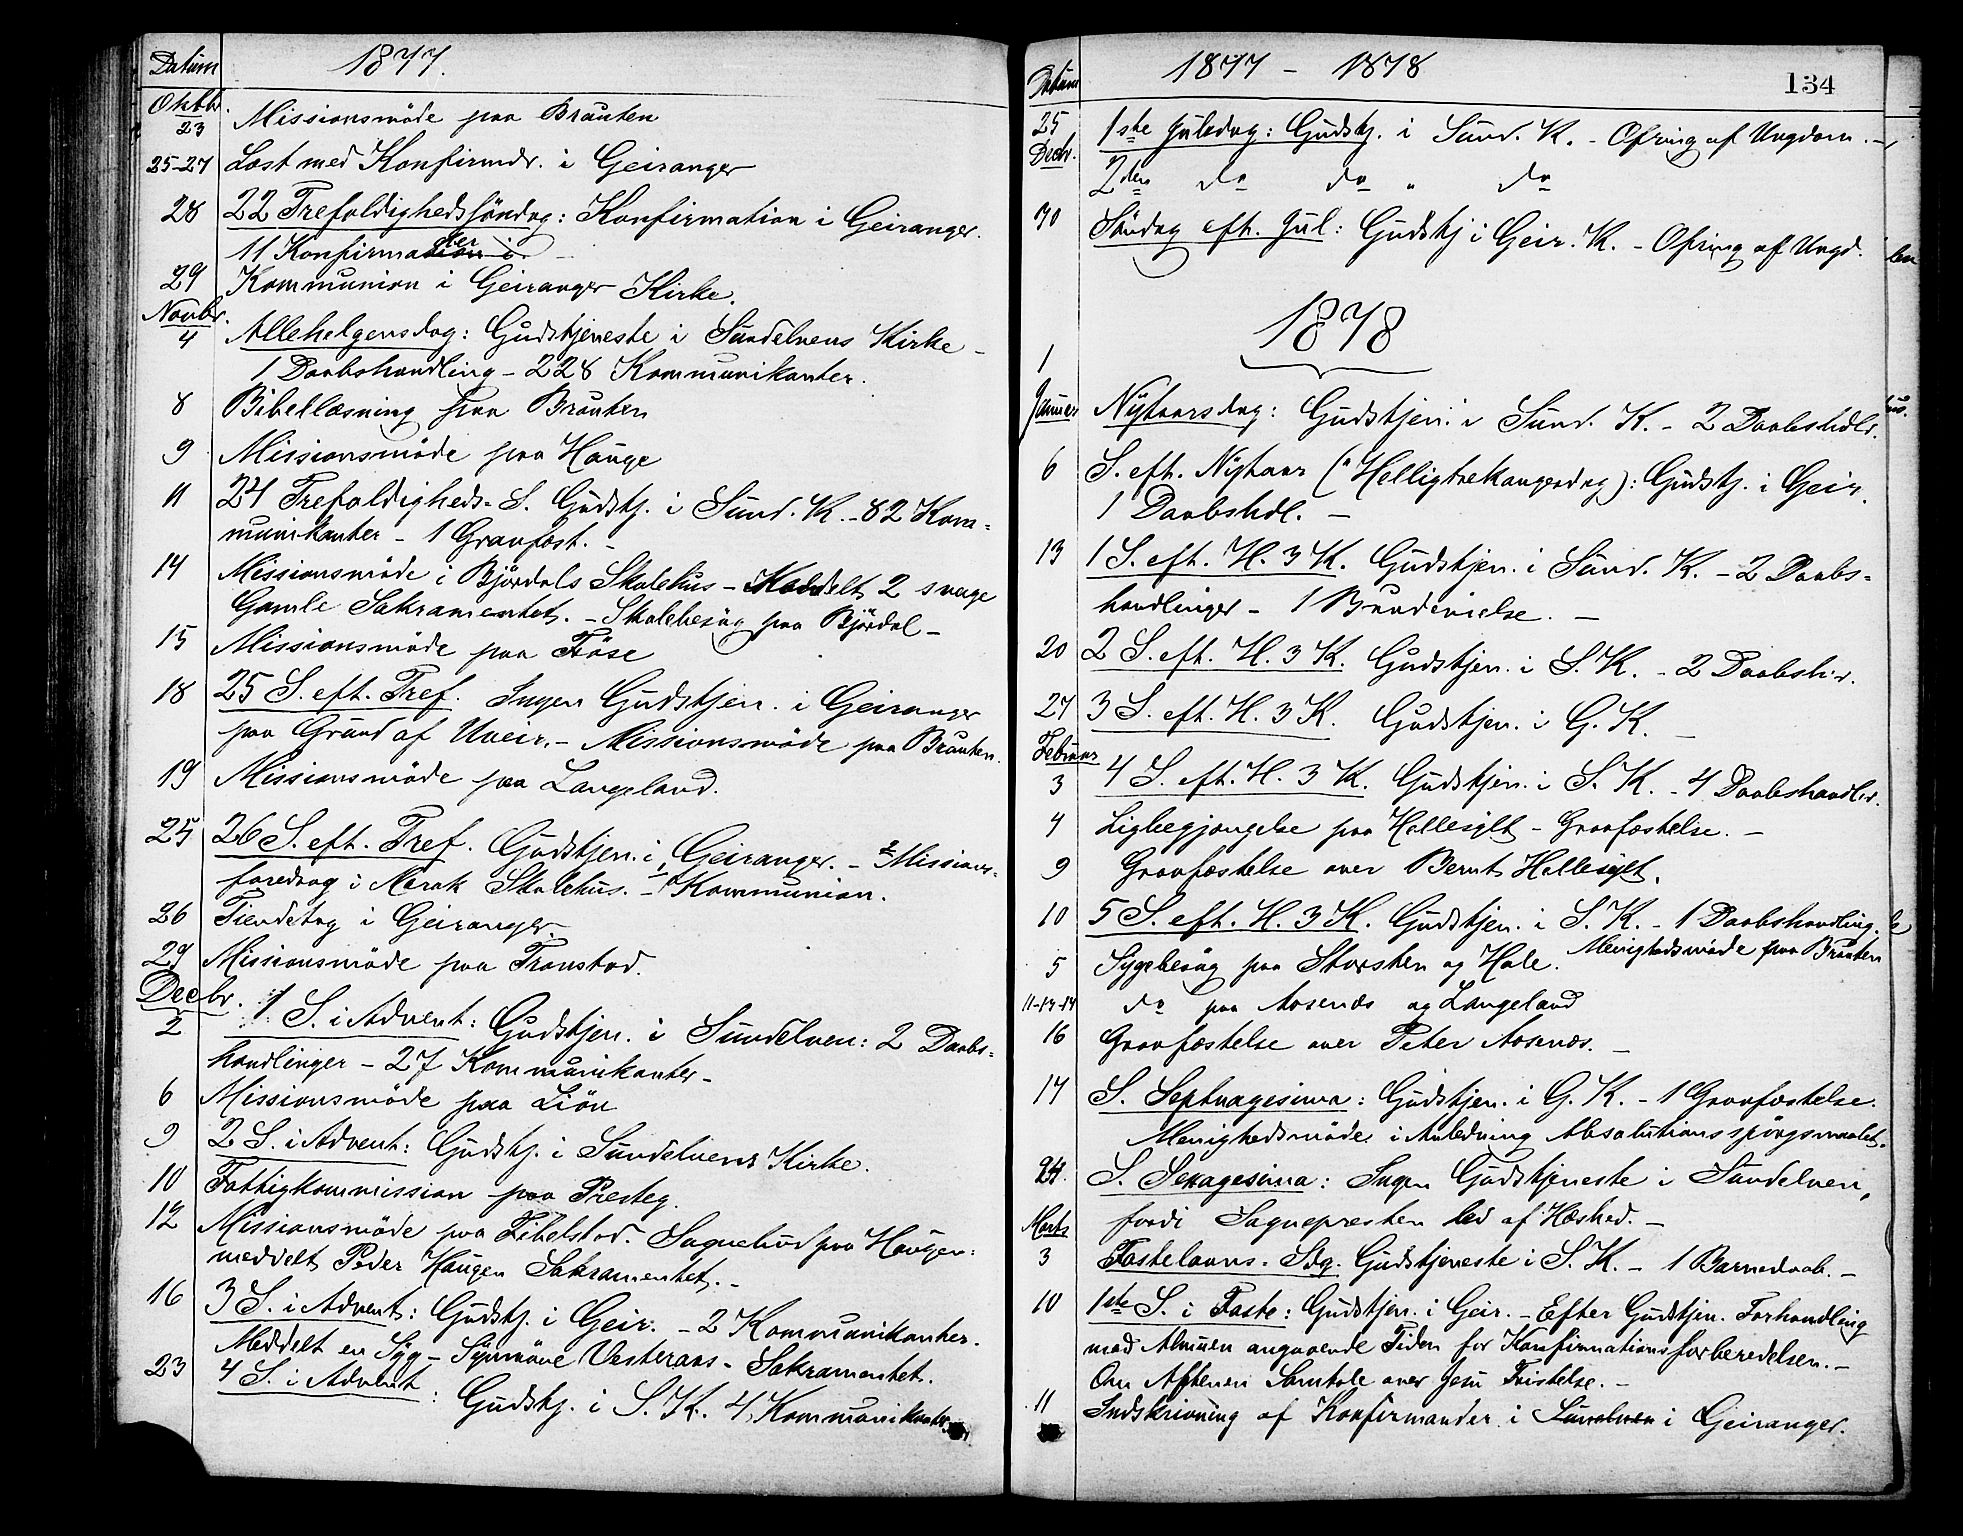 Datum 1877.
Oktbr. 23 Missionsmöde paa Brauten
25-27 Læst med Konfirmdr. i Geiranger
28 22 Trefoldighedssöndag: Konfirmation i Geiranger.
11 Konfirmanter
29 Kommunion i Geiranger Kirke.
Novbr. 4 Allehelgensdag: Gudstjeneste i Sundelvens Kirke –
1 Daabshandling – 228 Kommunikanter.
8 Bibellæsning paa Brauten
9 Missionsmöde paa Hauge
11 24 Trefoldigheds-S. Gudstj. i Sund. K. – 82 Kom-
munikanter – 1 Gravfæst. –
14 Missionsmöde i Björdals Skolehus – Meddelt 2 svage
Gamle Sakramentet. – Skolebesög paa Björdal –
15 Missionsmöde paa Fröse
18 25 S. eft. Tref. Ingen Gudstjen. i Geiranger
paa Grund af Uveir. – Missionsmöde paa Brauten.
19 Missionsmöde paa Langeland.
25 26 S. eft. Tref. Gudstjen. i Geiranger. – 2 Missions-
foredrag i Merok Skolehus. – 1 Kommunion.
26 Tiendetag i Geiranger.
29 Missionsmöde paa Tronstad.
Decbr. 2 1 S. i Advent: Gudstjen. i Sundelven: 2 Daabs-
handlinger – 27 Kommunikanter –
6 Missionsmöde paa Liön
9 2 S. i Advent: Gudstj. i Sundelvens Kirke.
10 Fattigkommission paa Presteg.
12 Missionsmöde paa Fibelstad. Sognebud paa Haugen:
meddelt Peder Haugen Sakramentet. –
16 3 S. i Advent: Gudstj. i Geir. – 2 Kommunikanter.
Meddelt en Syg – Synnöve Vesteraas – Sakramentet.
23 4 S. i Advent: Gudstj. i S. K. 4 Kommunikanter
Datum 1877 – 1878 134
25 Decbr. 1ste Juledag: Gudstj. i Sund. K. – Ofring af Ungdom. –
2den do do " do
30 Söndag eft. Jul: Gudstj i Geir. K. – Ofring af Ungd.
1878
1 Januar Nytaarsdag: Gudstjen. i Sund. K. – 2 Daabshdlr.
6 S. eft. Nytaar ("Helligtrekongersdag): Gudstj. i Geir.
1 Daabshdl. –
13 1 S. eft. H. 3 K. Gudstjen. i Sund. K. – 2 Daabs-
handlinger – 1 Brudevielse. –
20 2 S. eft. H. 3 K. Gudstjen. i S. K. – 2 Daabsh.r.
27 3 S. eft. H. 3 K. Gudstjen. i G. K. –
Februar 3 4 S. eft. H. 3 K. Gudstjen. i S. K. – 4 Daabshandlr.
4 Ligbegjængelse paa Hellesylt – Gravfæstelse. –
9 Gravfæstelse over Bernt Hellesylt.
10 5 S. eft. H. 3 K. Gudstjen. i S. K. – 1 Daabshandling.
Menighedsmöde paa Brauten
5 Sygebesög paa Storsten og Hole.
11-13-14 do paa Aasenæs og Langeland
16 Gravfæstelse over Peter Aasenæs. –
17 S. Septuagesima: Gudstjen. i G. K. – 1 Gravfæstelse.
Menighedsmöde i Anledning Absolutionsspörgsmaalet.
24. S. Sexagesima: Ingen Gudstjeneste i Sundelven,
fordi Sognepresten led af Hæshed. –
Marts 3 Fastelavns-Sdg. Gudstjeneste i S. K. – 1 Barnedaab. –
10 1ste S. i Faste: Gudstjen. i Geir. – Efter Gudstjen. Forhandling
med Almuen angaaende Tiden for Konfirmationsforberedelsen. –
Om Aftenen Samtale over Jesu Fristelse. –
11 Indskrivning af Konfirmander i Sundelven i Geiranger.